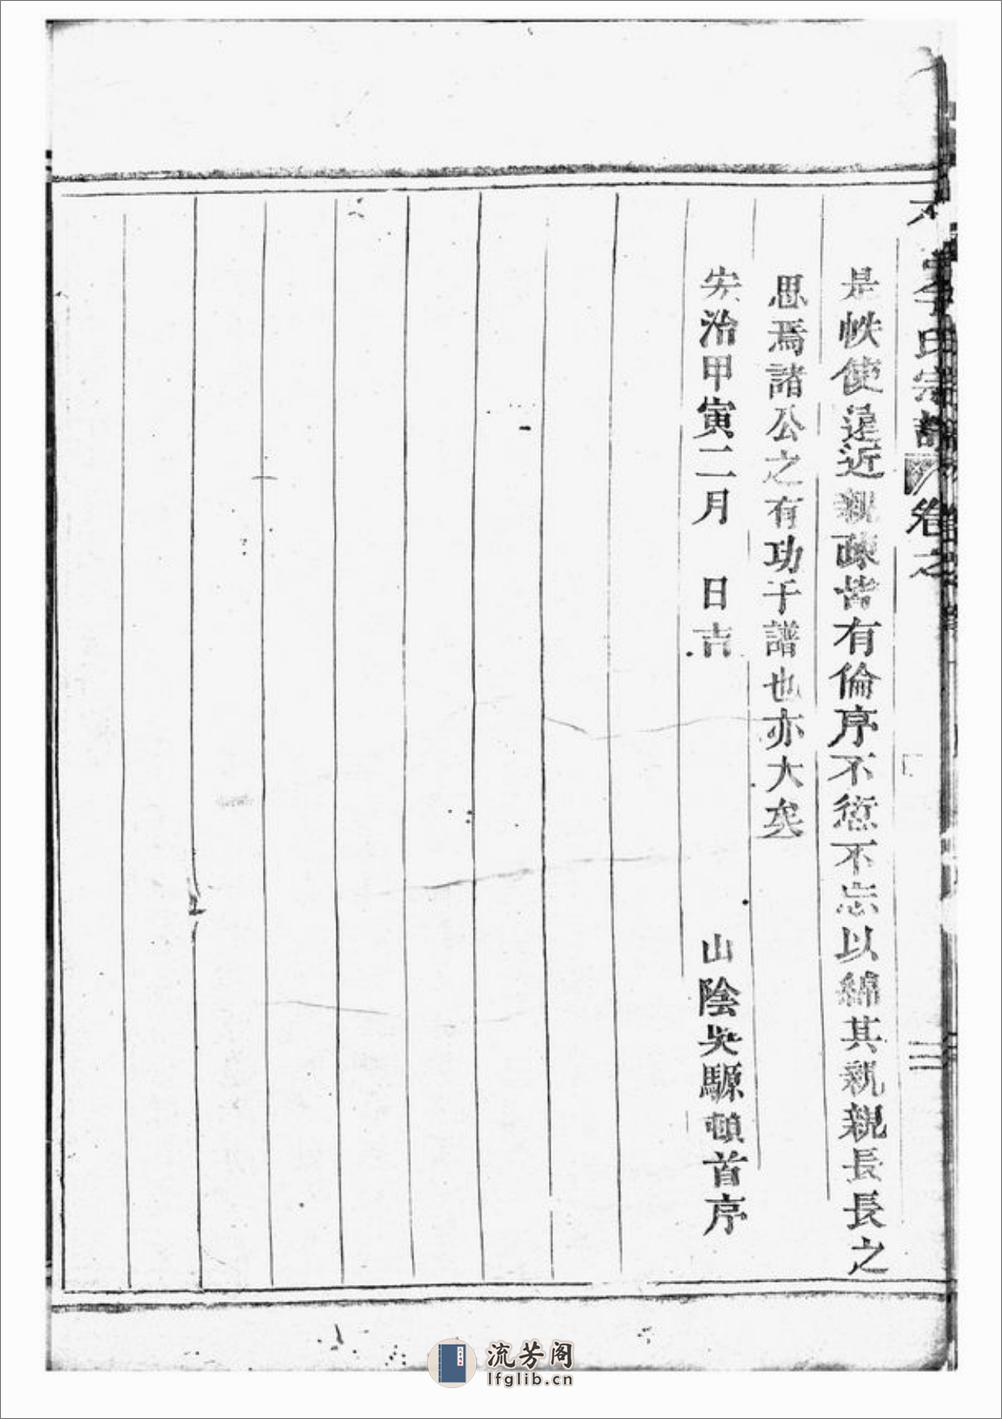 李氏宗譜 卷之
二
是帙使遠近親疎皆有倫序不愆不忘以綿其親親長長之
思焉諸公之有功于譜也亦大矣
治甲寅二月 日吉 山陰吳騵頓首序
流芳阁
lfglib.cn